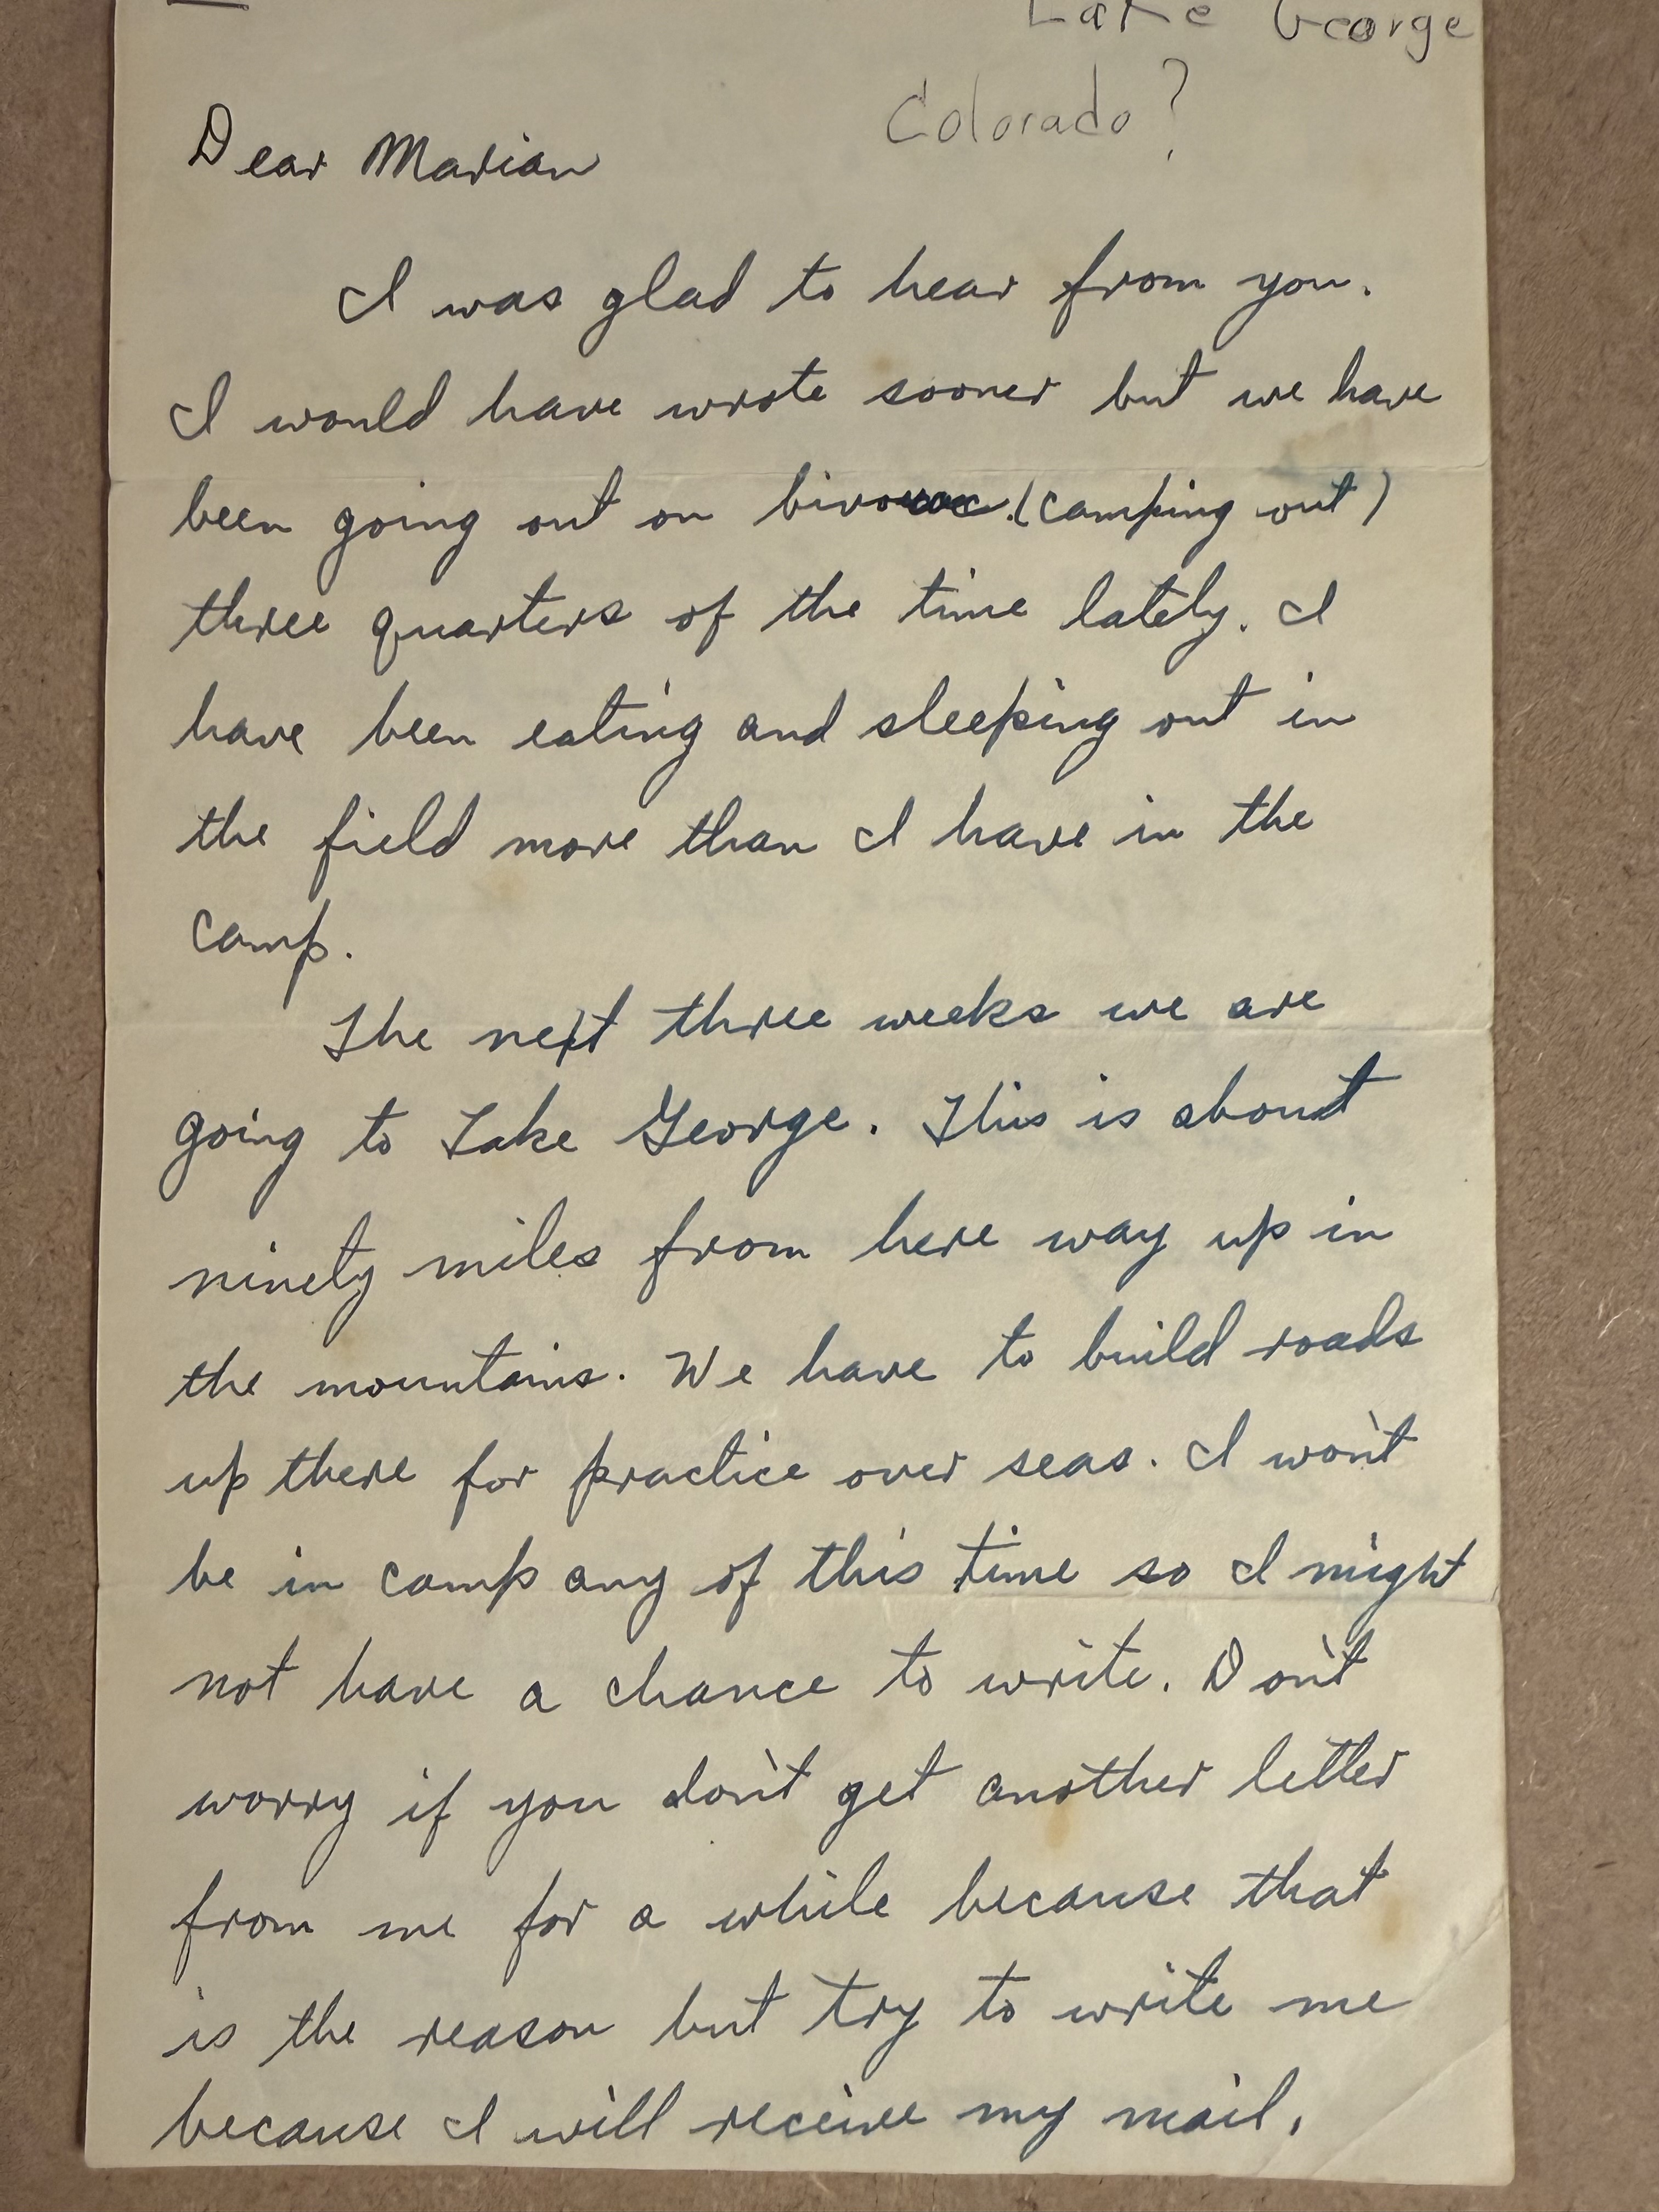 Lake George
Colorado?
Dear Marian
I was glad to hear from you.
I would have wrote sooner but we have
been going out on bivouac. (camping out)
three quarters of the time lately. I
have been eating and sleeping out in
the field more than I have in the
camp.
The next three weeks we are
going to Lake George. This is about
ninety miles from here way up in
the mountains. We have to build roads
up there for practice over seas. I won't
be in camp any of this time so I might
not have a chance to write. Don't
worry if you don't get another letter
from me for a while because that
is the reason but try to write me
because I will receive my mail.